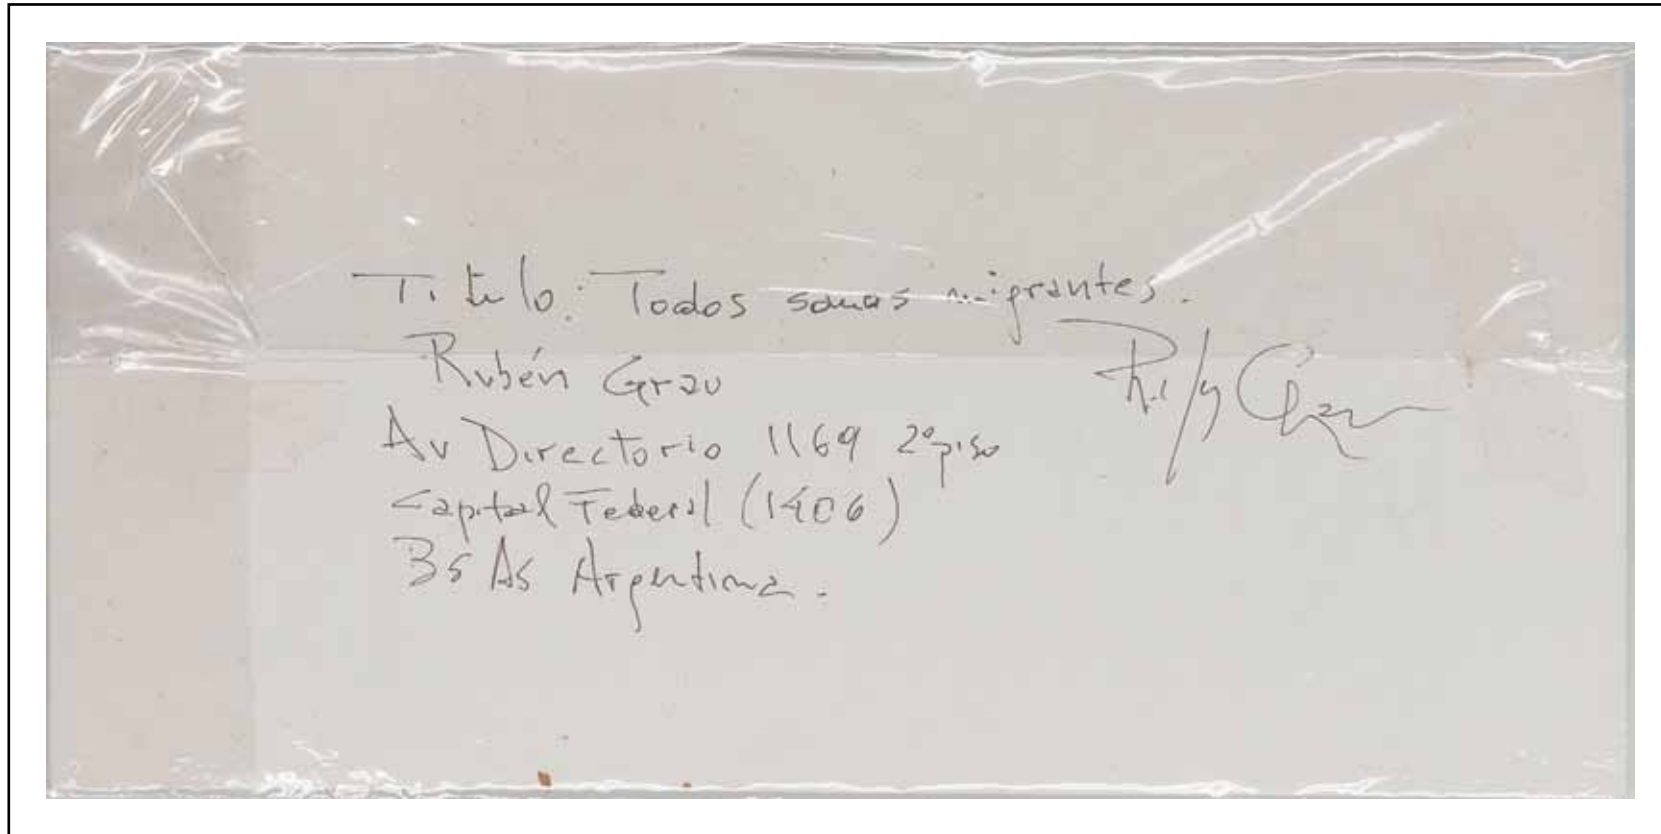 Titulo: Todos somos migrantes.
Rubén Grau
Av Directorio 1169 2º piso
Capital Federal (1406)
Bs As Argentina.